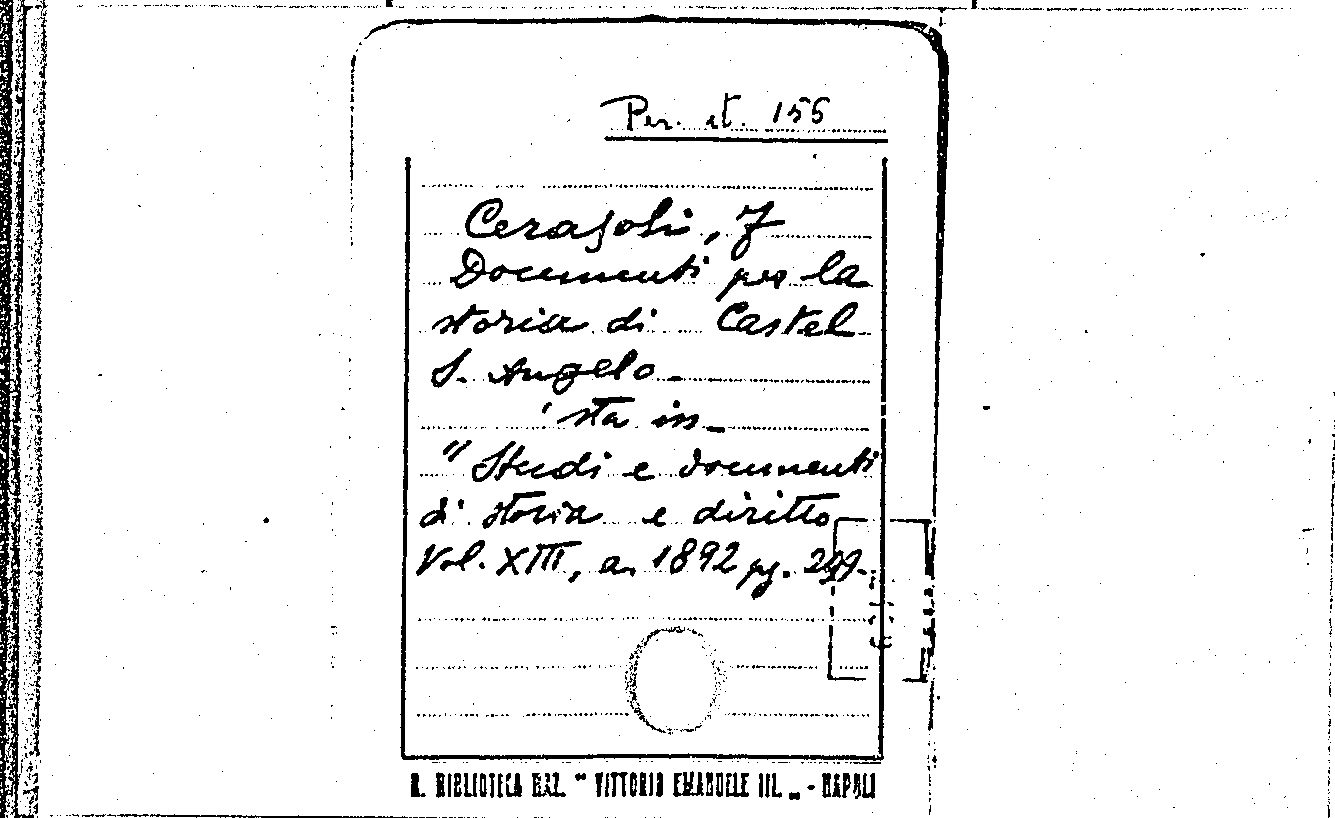 Per. it. 155
Cerasoli, F
Documenti per la
storia di Castel
S. Angelo -
sta in -
" Studi e documenti
di storia e diritto
Vol. XIII, a. 1892 pg.
R. BIBLIOTECA NAZ. " VITTORIO EMANUELE III. „ - NAPOLI